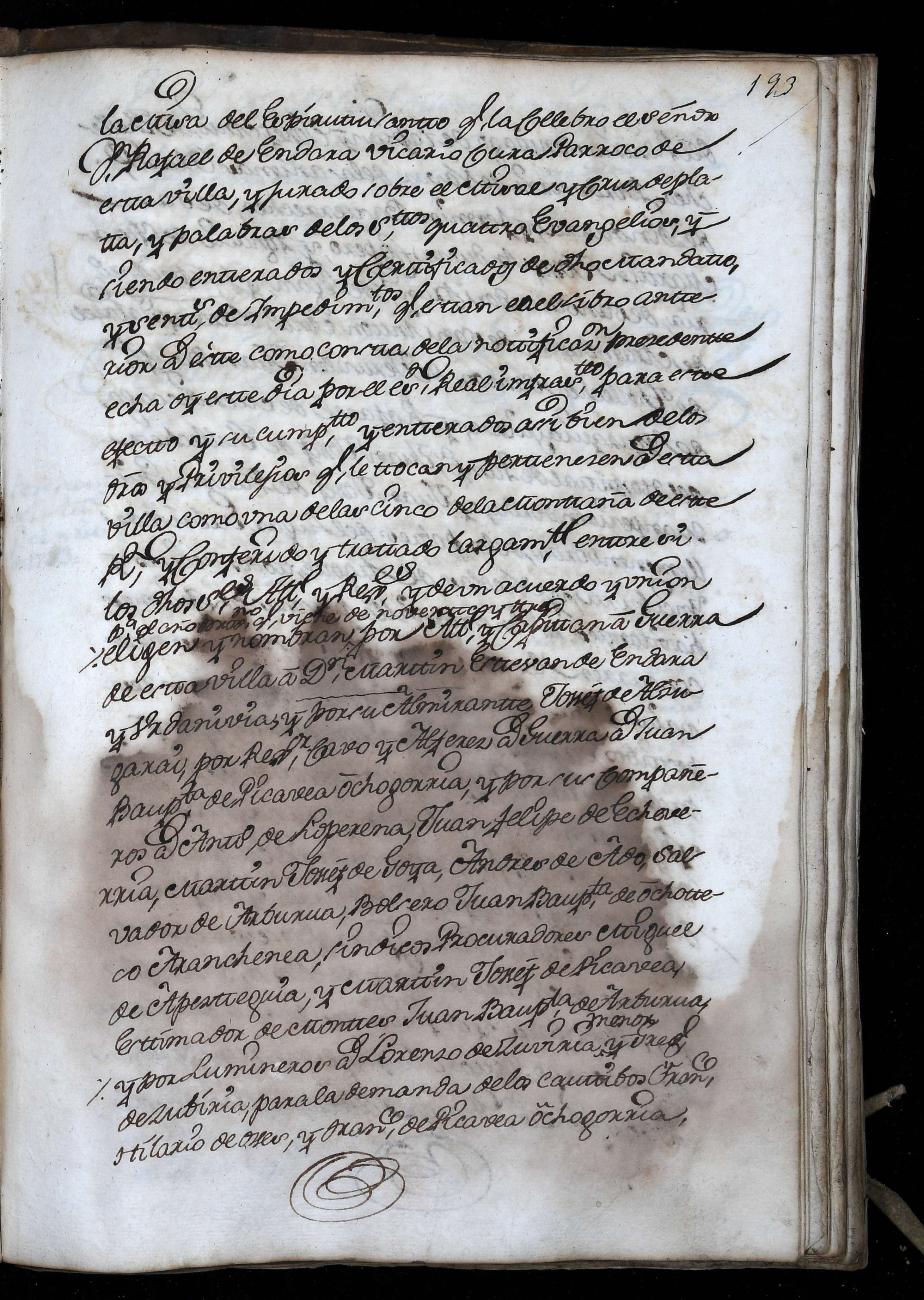 193
la misa del Espiritu santto q.e la Celebro el señor
D.n Rafael de Endara Vicario Cura Parroco de
esta villa, y jurado sobre el misal y Cruz de pla-
tta, y palabras de los s.ttos quattro Evangelios, y
siendo entterados y Certtificados de dho mandatto,
y sentt.s de Impedim.tos q.e estan en el Libro antte
rior â este como consta de la nottificaz.on precedentte
echa oy este dia por el es.no Real infraes.tto para este
efecto y su cump.tto y entterados asi bien de los
dros y Privilejios q.e le ttocan y perttenezen â esta
villa como una de las cinco de la Monttaña de este
R.no y Conferido y trattado largam.te enttre si
los dhos s.res Al.e y Rex.es y de un acuerdo y union
viene de noventta y tres
% eligen y nombran por Al.e y Capittan â Guerra
de esta villa â D.n Marttin Estevan de Endara
y Urdanivia, y por su Almirantte Josef de Alzu
garai, por Rex.r Cavo y Alferez â Guerra â Juan
Baup.ta de Picavea Ochogorria, y por sus Compañe-
ros â Antt.o de Loperena, Juan felipe de Echeve-
rria, Marttin Josef de Goya, Andres de Ado, Sal
vador de Artturua, Bolsero Juan Baup.ta de Ochotte
co Aranchenea, sindicos Procuradores Miguel
de Apezteguia, y Marttin Josef de Picavea,
Esttimador de Monttes Juan Baup.ta de Artturua,
menor
% y por Lumineros â Lorenzo de Zuviria, y
de Zubiria, para la demanda de los cauttibos Fran.co
Hilario de y Fran.co de Picavea Ochogorria,